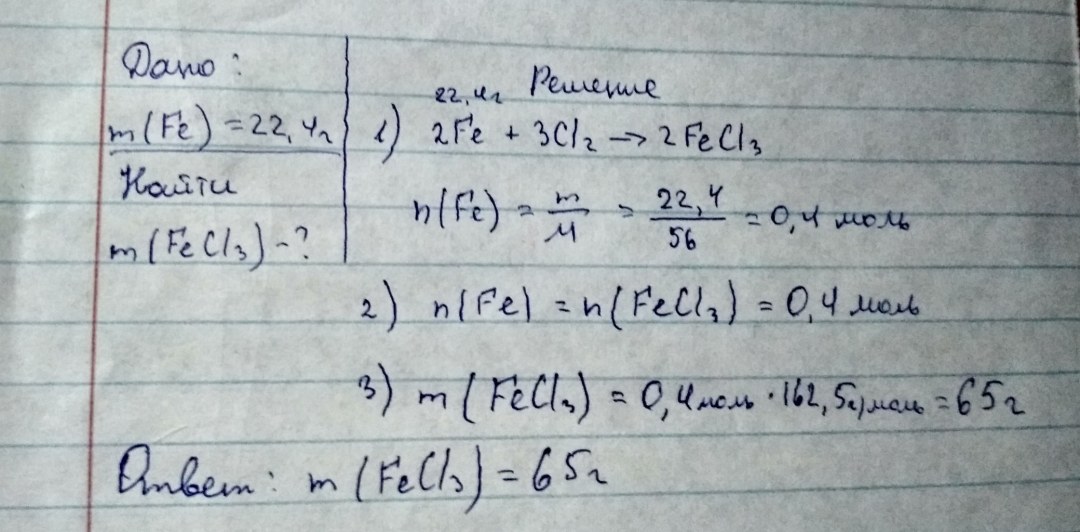 Дано:
m(Fe) = 22,4г
Найти
m(FeCl₃) - ?
Решение
22,4г
1) 2Fe + 3Cl₂ → 2FeCl₃
n(Fe) = m/M = 22,4/56 = 0,4 моль
2) n(Fe) = n(FeCl₃) = 0,4 моль
3) m(FeCl₃) = 0,4 моль · 162,5г/моль = 65г
Ответ: m(FeCl₃) = 65г